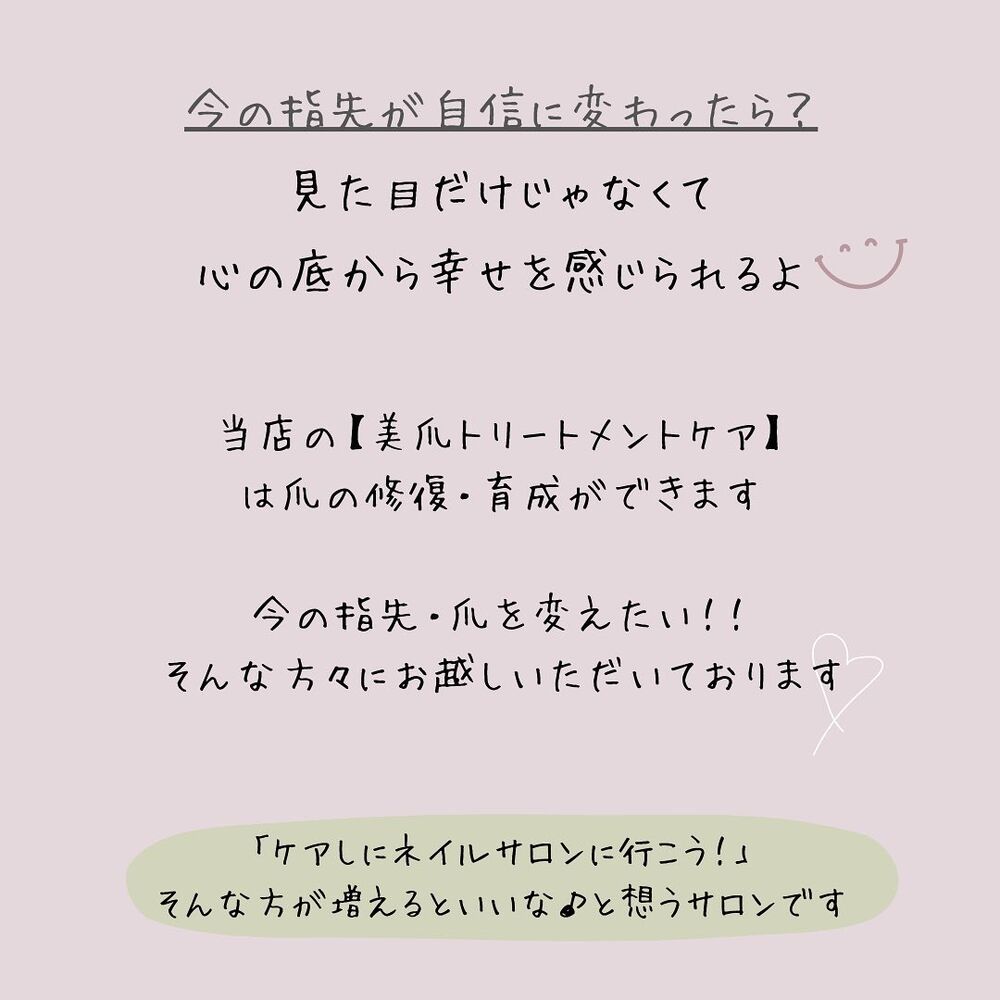 今の指先が自信に変わったら?
見た目だけじゃなくて
心の底から幸せを感じられるよ
当店の【美爪トリートメントケア】
は爪の修復・育成ができます
今の指先・爪を変えたい!!
そんな方々にお越しいただいております
「ケアしにネイルサロンに行こう!」
そんな方が増えるといいな♪と想うサロンです